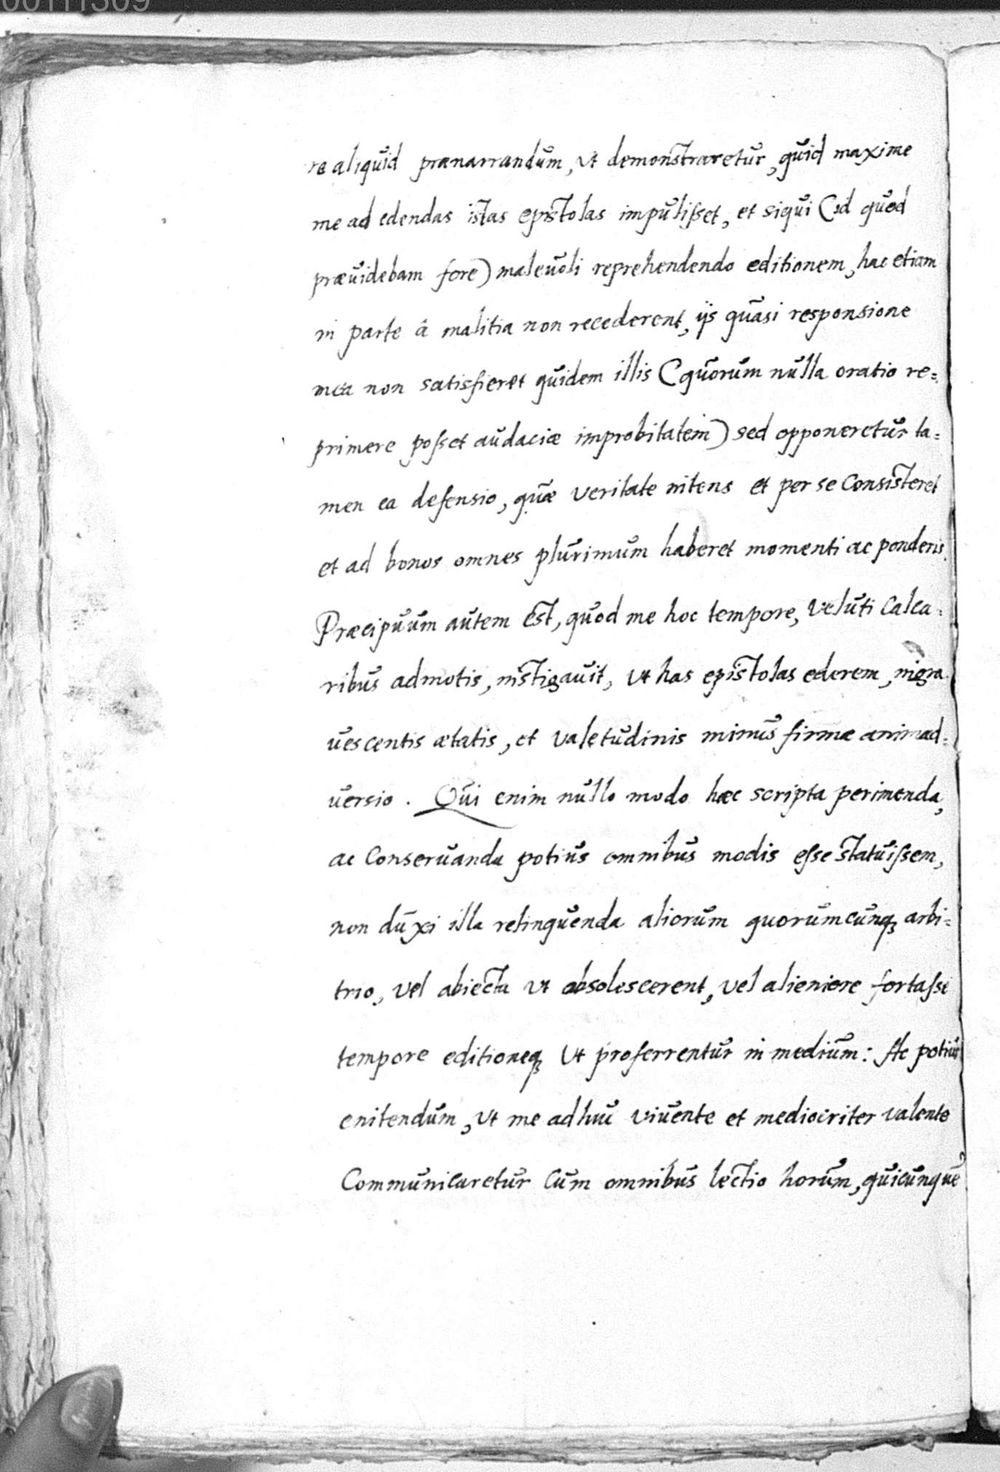 00111309
re aliquid prænarrandum, ut demonstraretur, quid maxime
me ad edendas istas epistolas impulisset, et siqui (id quod
præuidebam fore) maleuoli reprehendendo editionem, hac etiam
in parte â malitia non recederent, ijs quasi responsione
mea non satisfieret quidem illis (quorum nulla oratio re=
primere posset audaciæ improbitatem) sed opponeretur ta=
men ea defensio, quæ veritate nitens et per se Consisteret
et ad bonos omnes plurimum haberet momenti ac ponderis.
Præcipuum autem est, quod me hoc tempore, veluti calca=
ribus admotis, instigauit, ut has epistolas ederem, ingra
uescentis ætatis, et valetudinis minus firmæ animad=
uersio. Qui enim nullo modo hæc scripta perimenda,
ac Conseruanda potius omnibus modis esse statuissem,
non duxi illa relinquenda aliorum quorumcunq arbi=
trio, vel abiecta ut obsolescerent, vel alieniore fortasse
tempore editioneq ut proferrentur in medium: Ac potius
enitendum, ut me adhuc viuente et mediocriter valente
Communicaretur Cum omnibus lectio horum, quicunque